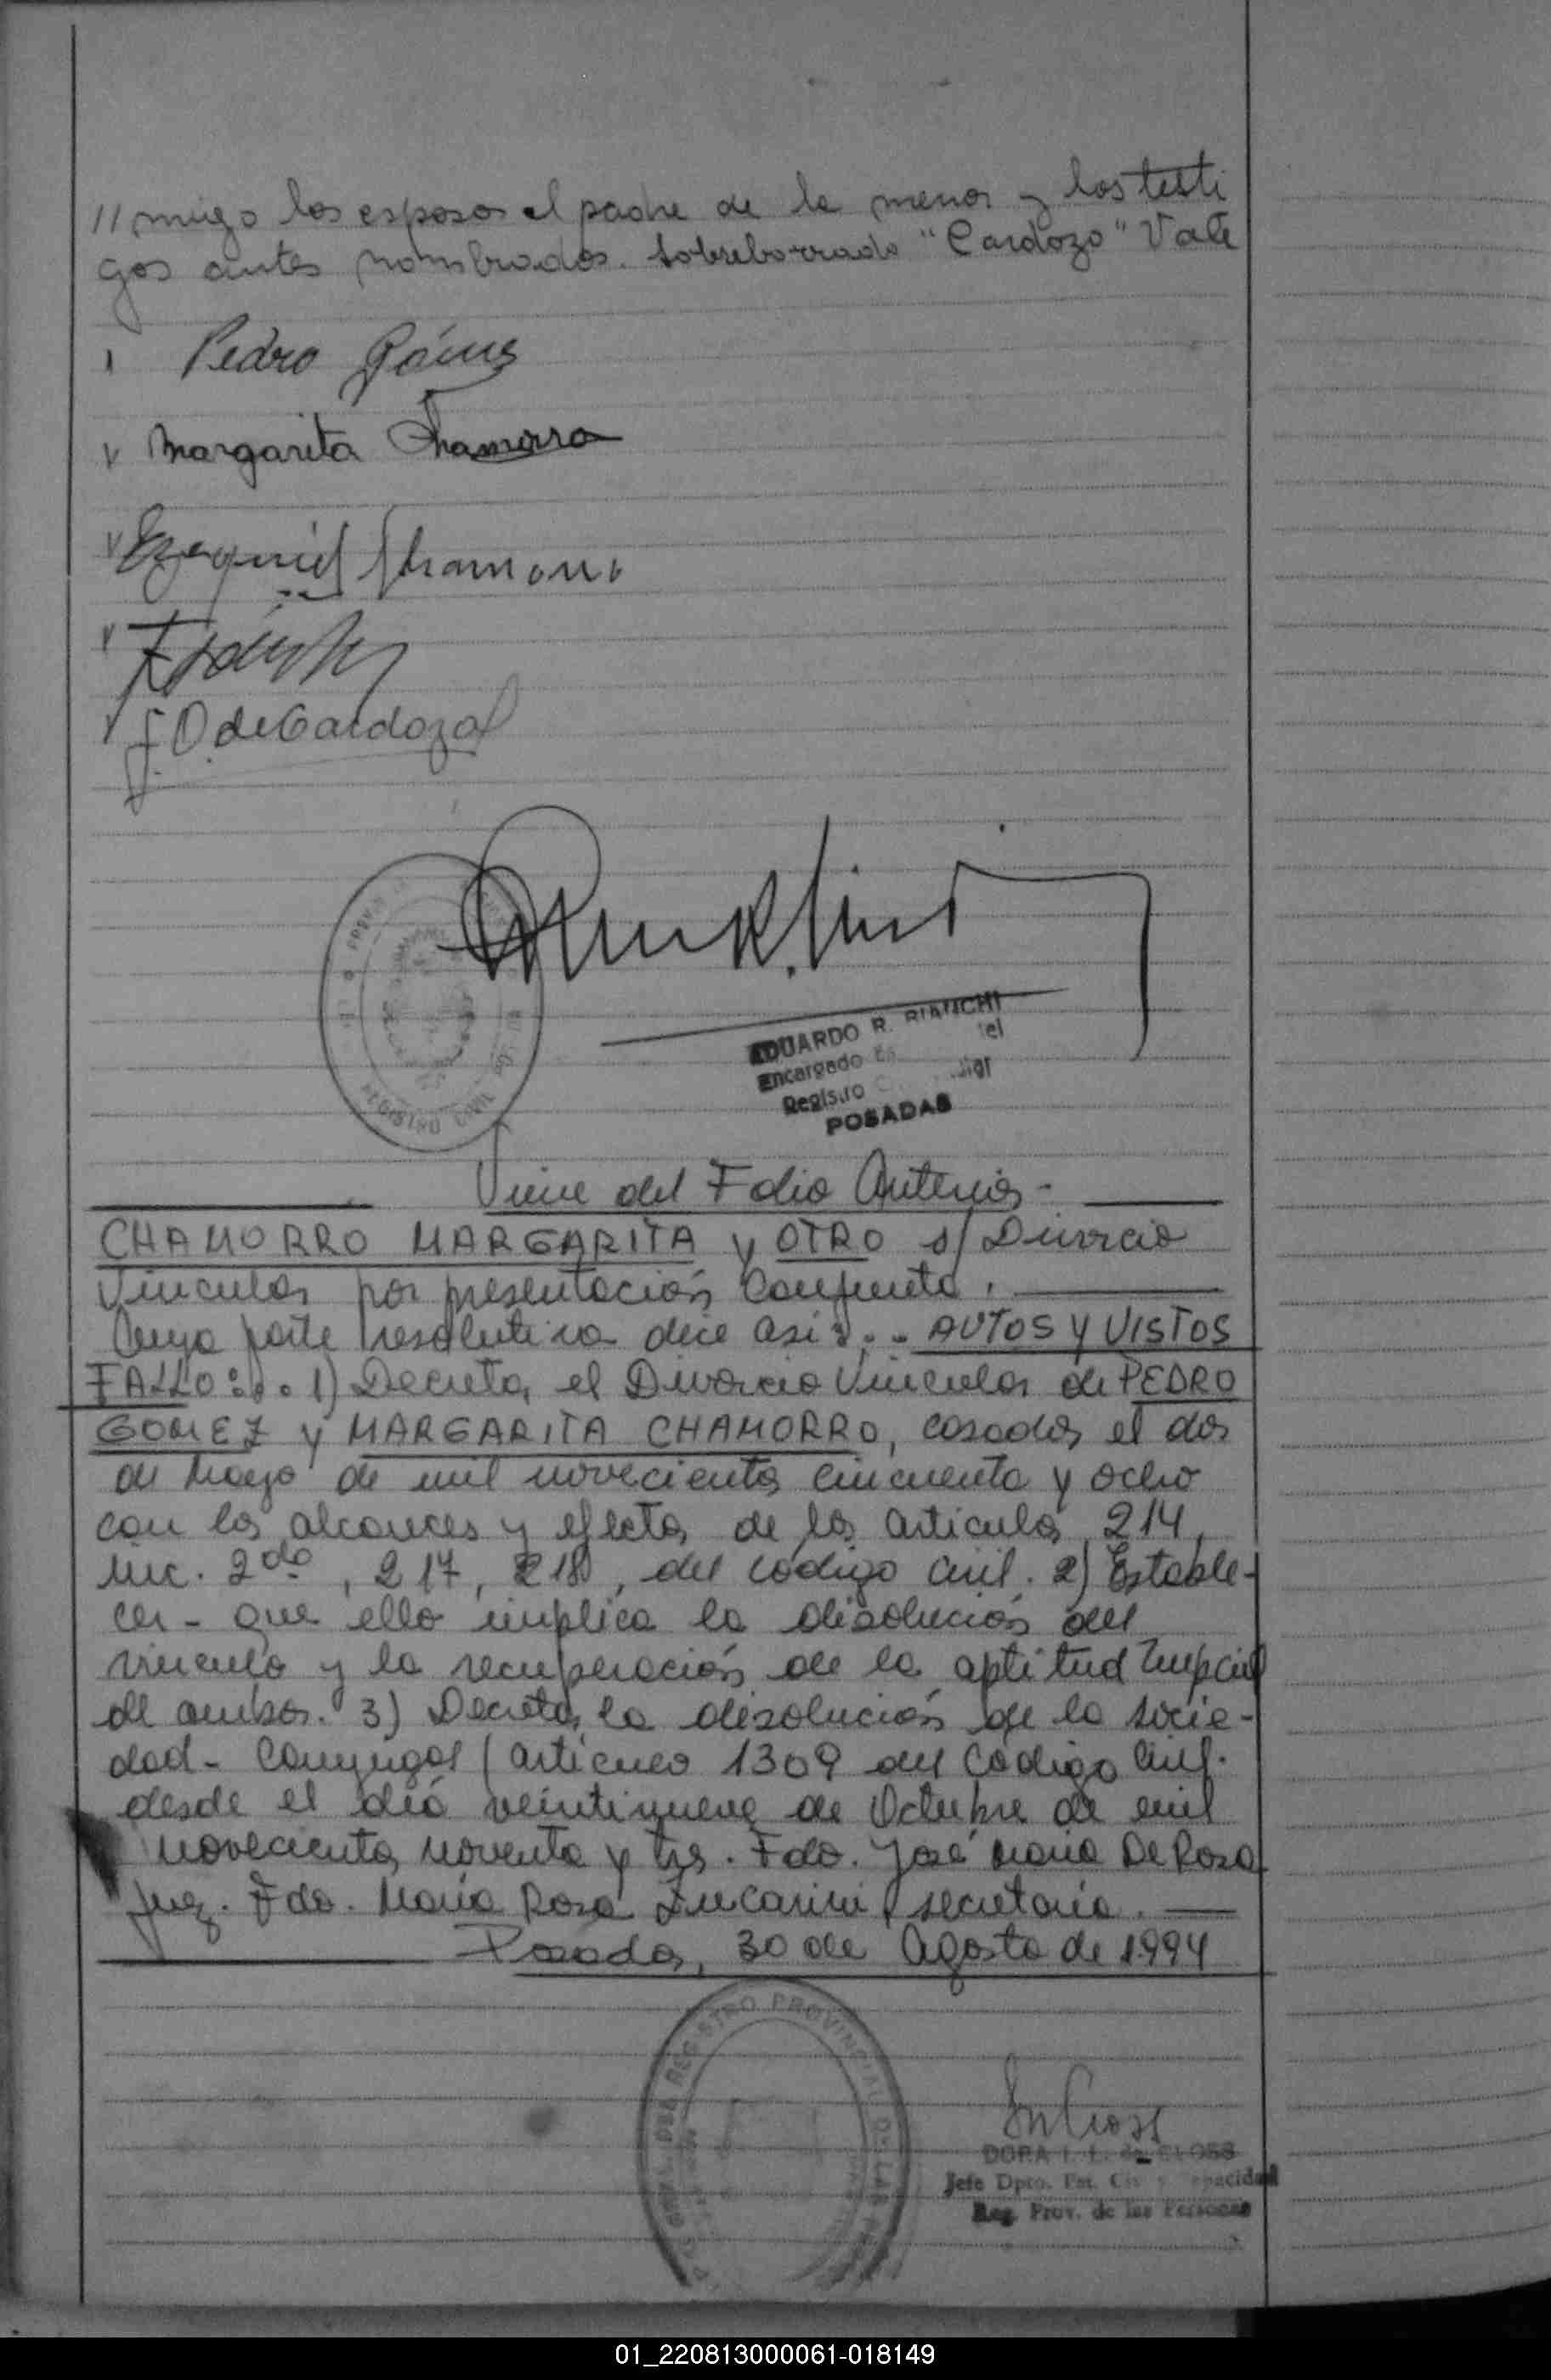 //migo los esposos el padre de la menor y los testi
gos antes nombrados. Sobreborrado "Cardozo" Vale
Pedro Gómez
Margarita Chamorro
Ezequiel Chamorro
O de Cardozo
REGISTRO CIVIL
EDUARDO R. BIANCHI
Encargado
Registro
POSADAS
Viene del Folio Anterior-
CHAMORRO MARGARITA y OTRO s/ Divorcio
Vincular por presentación Conjunta.
Cuya parte resolutiva dice así:.- AUTOS Y VISTOS
FALLO:.. 1) Decretar el Divorcio Vincular de PEDRO
GOMEZ y MARGARITA CHAMORRO, casados el dos
de Mayo de mil novecientos cincuenta y ocho
con los alcances y efectos de los artículos 214,
inc. 2do, 217, 218, del código civil. 2) Estable-
cer- que ello implica la disolución del
vínculo y la recuperación de la aptitud nupcial
de ambos. 3) Decretar la disolución de la socie-
dad- Conyugal (artículo 1309 del Código Civil.
desde el día veintinueve de Octubre de mil
novecientos noventa y tres. Fdo. José María De Rosa
Juez. Fdo. María Rosa Lucarini secretaria.
Posadas, 30 de Agosto de 1994
REGISTRO PROVINCIAL DE LAS
DORA I. L. de CLOSS
Jefe Dpto. Est. Civ y Capacidad
Reg. Prov. de las Personas
01_220813000061-018149